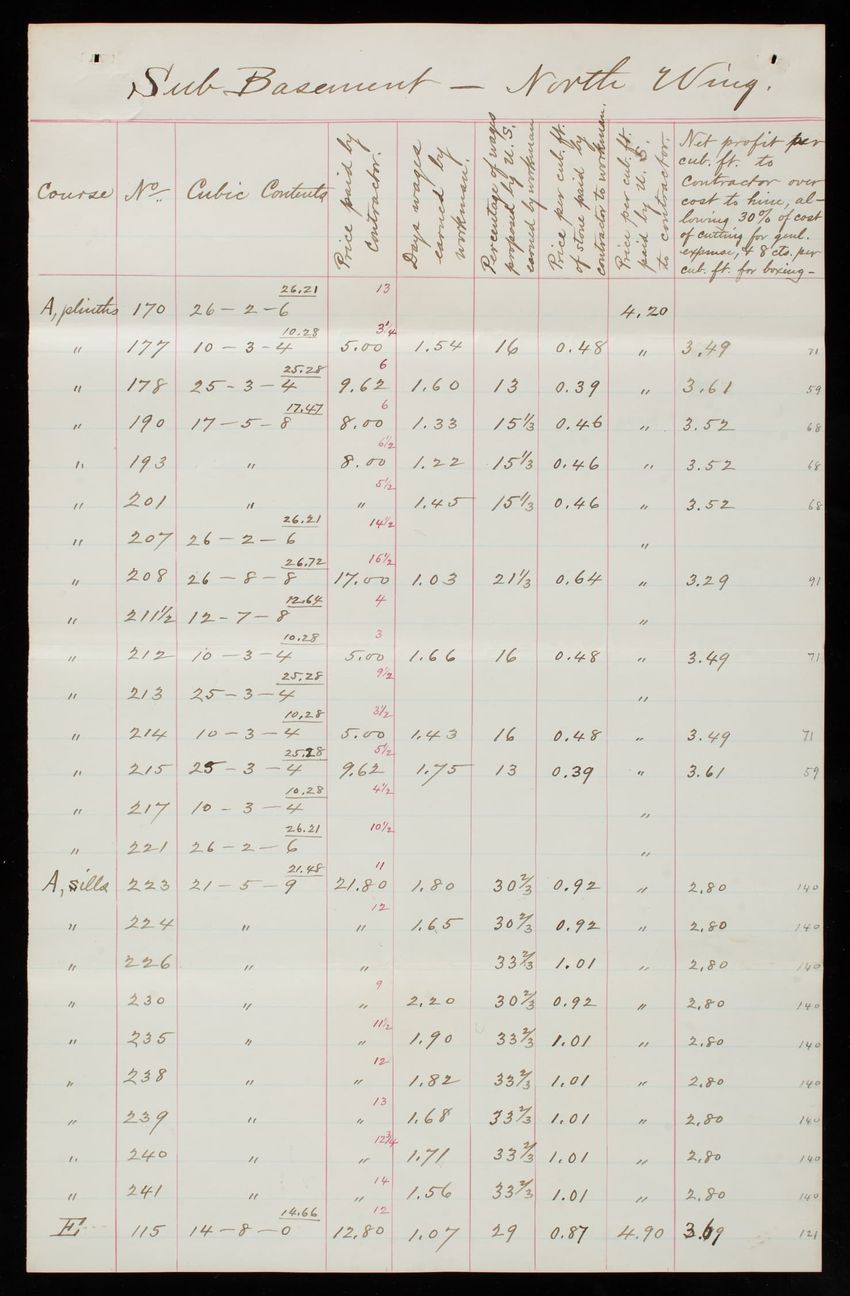 Sub Basement — North Wing.
Course
No.
Cubic Contents
Price paid by
contractor.
Days wages
earned by
workman.
Percentage of wages
proposed by U.S.
earned by workmen
Price per cub. ft.
of stone paid by
contractor to workman.
Price per cub. ft.
paid by U.S.
to contractor.
Net profit per
cub. ft. to
contractor over
cost to him, al-
lowing 30% of cost
of cutting for genl.
expense, & 8 cts. per
cub. ft. for boxing—
26.21 13
A, plinths 170 26–2–6 4.20
10.28 3 1/4
" 177 10–3–4 5.00 1.54 16 0.48 " 3.49 71
25.28 6
" 178 25–3–4 9.62 1.60 13 0.39 " 3.61 59
17.47 6
" 190 17–5–8 8.00 1.33 15 1/3 0.46 " 3.52 68
6 1/2
" 193 " 8.00 1.22 15 1/3 0.46 " 3.52 68
5 1/2
" 201 " " 1.45 15 1/3 0.46 " 3.52 68
26.21 14 1/2
" 207 26–2–6 "
26.72 16 1/2
" 208 26–8–8 17.00 1.03 21 1/3 0.64 " 3.29 91
12.64 4
" 211 1/2 12–7–8 "
10.28 3
" 212 10–3–4 5.00 1.66 16 0.48 " 3.49 71
25.28 9 1/2
" 213 25–3–4 "
10.28 3 1/2
" 214 10–3–4 5.00 1.43 16 0.48 " 3.49 71
25.28 5 1/2
" 215 25–3–4 9.62 1.75 13 0.39 " 3.61 59
10.28 4 1/2
" 217 10–3–4 "
26.21 10 1/2
" 221 26–2–6 "
21.48 11
A, sills 223 21–5–9 21.80 1.80 30 2/3 0.92 " 2.80 140
12
" 224 " " 1.65 30 2/3 0.92 " 2.80 140
" 226 " " 33 2/3 1.01 " 2.80 140
9
" 230 " " 2.20 30 2/3 0.92 " 2.80 140
11 1/2
" 235 " " 1.90 33 2/3 1.01 " 2.80 140
12
" 238 " " 1.82 33 2/3 1.01 " 2.80 140
13
" 239 " " 1.68 33 2/3 1.01 " 2.80 140
12 3/4
" 240 " " 1.71 33 2/3 1.01 " 2.80 140
14
" 241 " " 1.56 33 2/3 1.01 " 2.80 140
14.66 12
E, 115 14–8–0 12.80 1.07 29 0.87 4.90 3.69 121